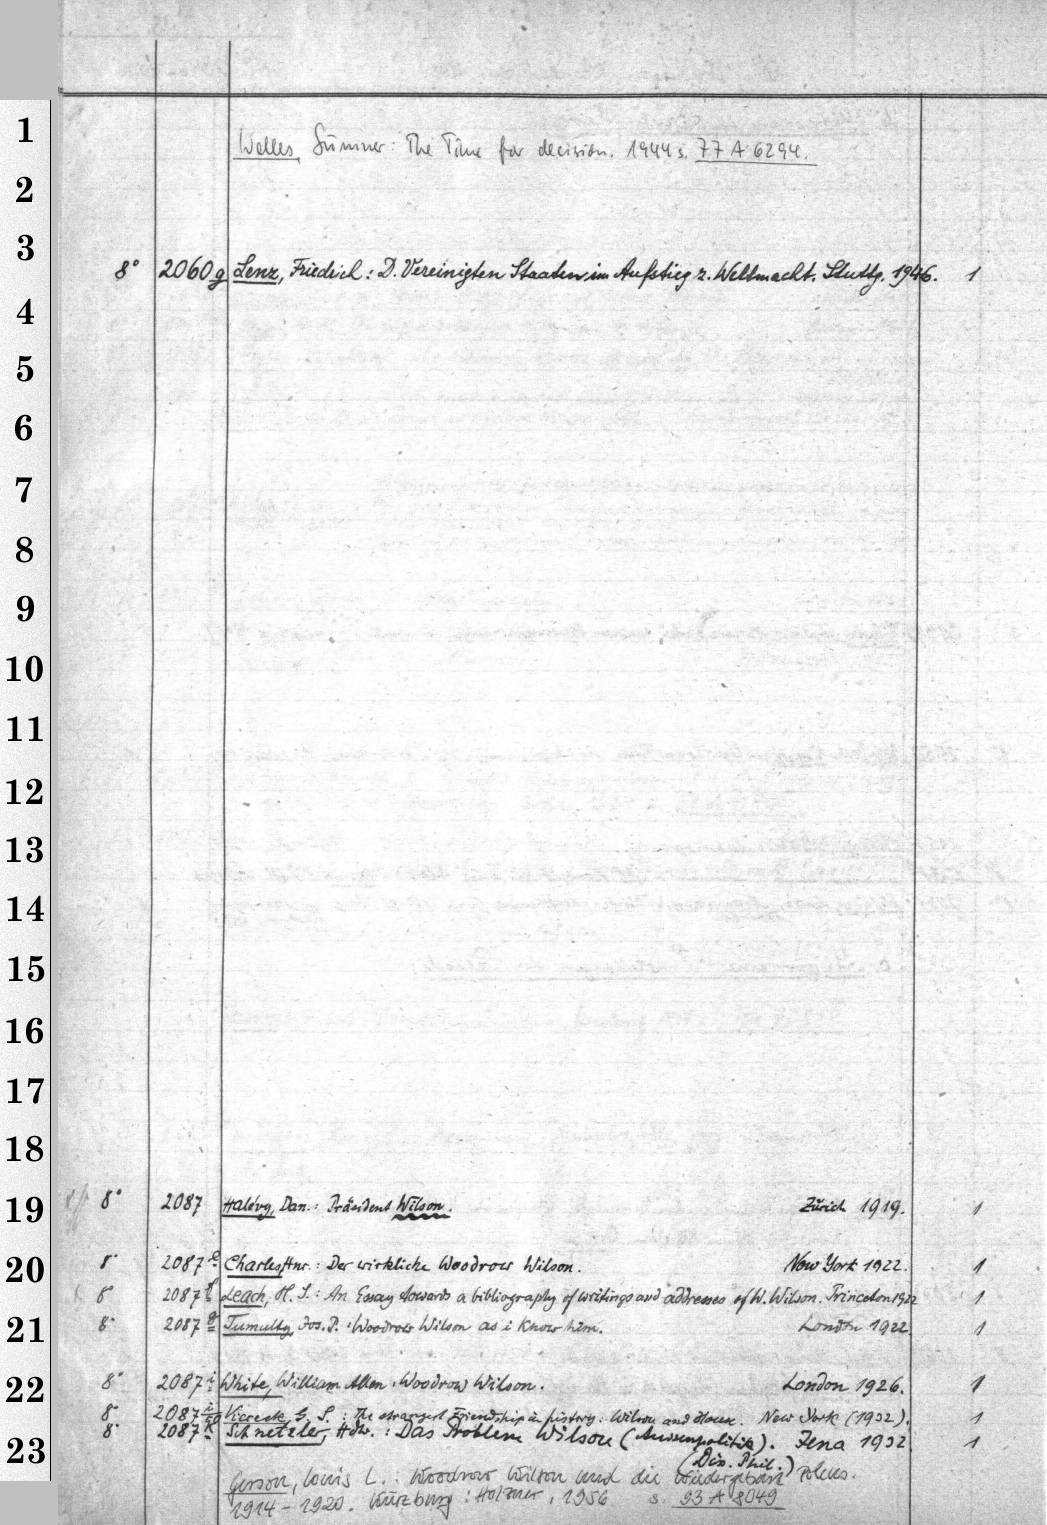 1
Welles, Sumner: The Time for decision. 1944 s. 77 A 6294.
2
3
8° 2060g Lenz, Friedrich: D. Vereinigten Staaten im Aufstieg z. Weltmacht. Stuttg. 1946. 1
4
5
6
7
8
9
10
11
12
13
14
15
16
17
18
19 8° 2087 Halévy, Dan.: Präsident Wilson. Zürich 1919. 1
20 8° 2087 e Charles, Hnr.: Der wirkliche Woodrow Wilson. New York 1922. 1
8° 2087 f Leach, H. S.: An Essay towards a bibliography of writings and addresses of W. Wilson. Princeton 1922 1
21 8° 2087 g Tumulty, Jos. P.: Woodrow Wilson as i know him. London 1922. 1
22 8° 2087 i White, William Allen: Woodrow Wilson. London 1926. 1
8° 2087 Viereck, G. S.: The strangest Friendship in history: Wilson and House. New York (1932). 1
23 8° 2087 k Schnetzler, Hdw.: Das Problem Wilson (Aussenpolitik). Jena 1932 1
(Dis. Phil.)
Gerson, Louis L.: Woodrow Wilson und die Wiedergeburt Polens.
1914-1920. Würzburg: Holzner, 1956 s. 93 A 8049